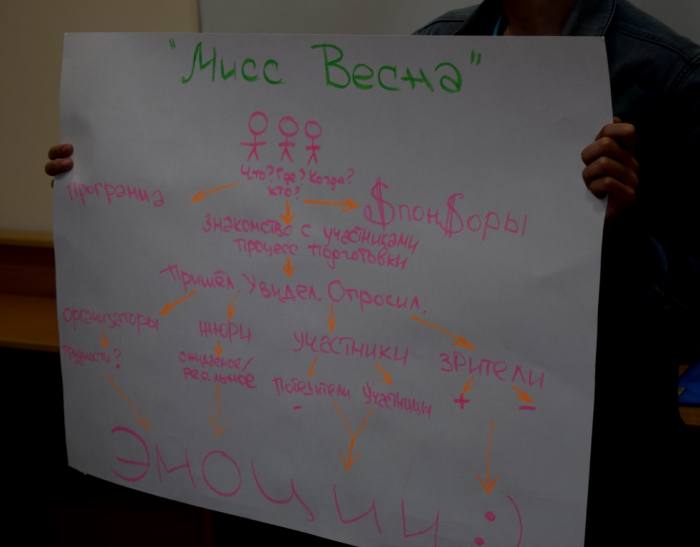 "Мисс Весна"
Что? Где? Когда?
Кто?
Программа
$пон$оры
Знакомство с участниками
процесс подготовки
Пришёл. Увидел. Опросил.
организаторы
жюри
участники
зрители
трудности?
ожидаемое/
реальное
победители
участницы
+
-
-
Эмоции :)